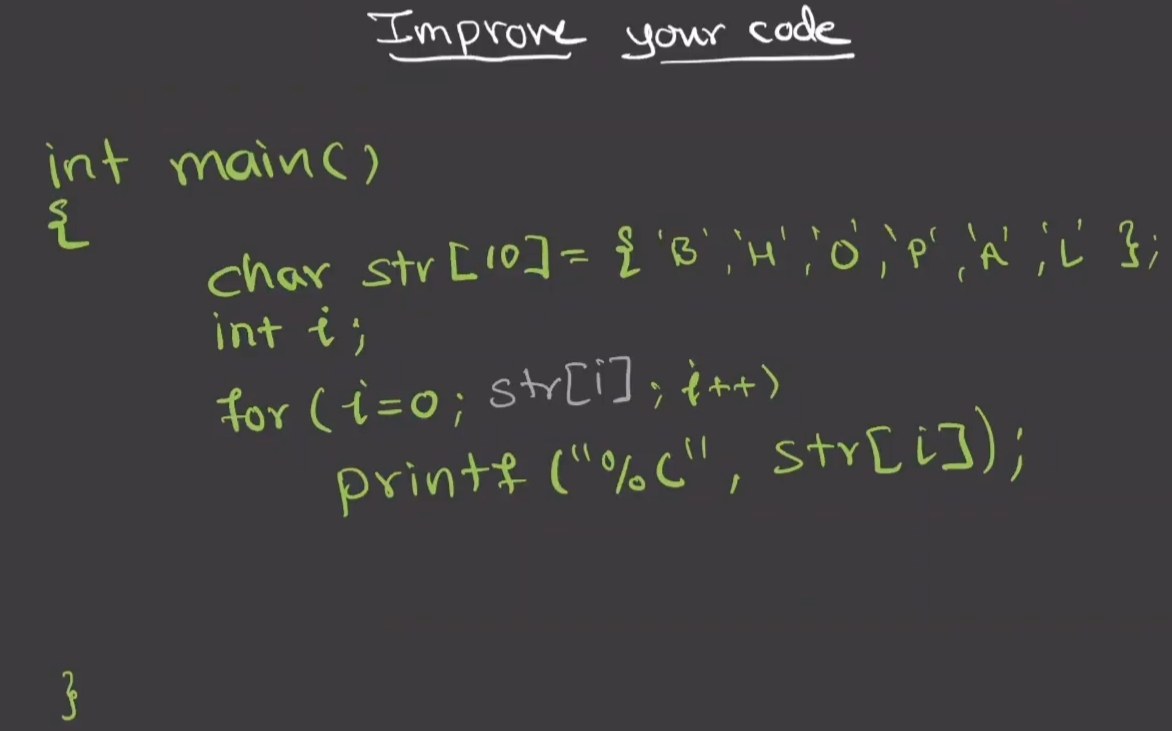 Improve your code
int main()
{
char str[10]= { 'B','H','O','P','A','L' };
int i;
for (i=0; str[i]; i++)
printf ("%c", str[i]);
}